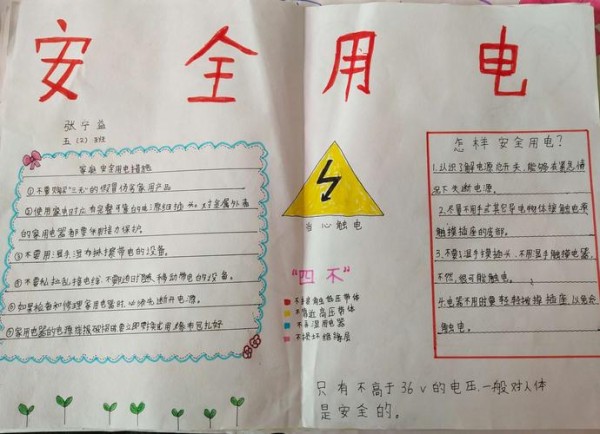 安全用电
张宁益
五(2)班
家庭安全用电措施
①不要购买“三无”的假冒伪劣家用产品
②使用家电时应有完整可靠的电源线插头。对金属外壳
的家用电器都要采用接地保护。
③不要用湿手湿布擦带电的设备。
④不要私拉乱接电线,不要随便移动带电的设备。
⑤如果检查和修理家用电器时,必须先断开电源。
⑥家用电器的电源线破损时要立即更换或用绝缘布包扎好
当心触电
“四不”
不接触低压带体
不靠近高压带体
不弄湿用电器
不损坏绝缘层
怎样安全用电?
1.认识了解电源总开关,能够在紧急情
况下关断电源。
2.不要用手或其它导电物体接触电源
触摸插座的底部。
3.不要湿手摸插头,不用湿手触摸电器,
不然,很可能触电。
4.电器不用时要轻轻拔插座,以免
触电。
只有不高于36v的电压,一般对人体
是安全的。